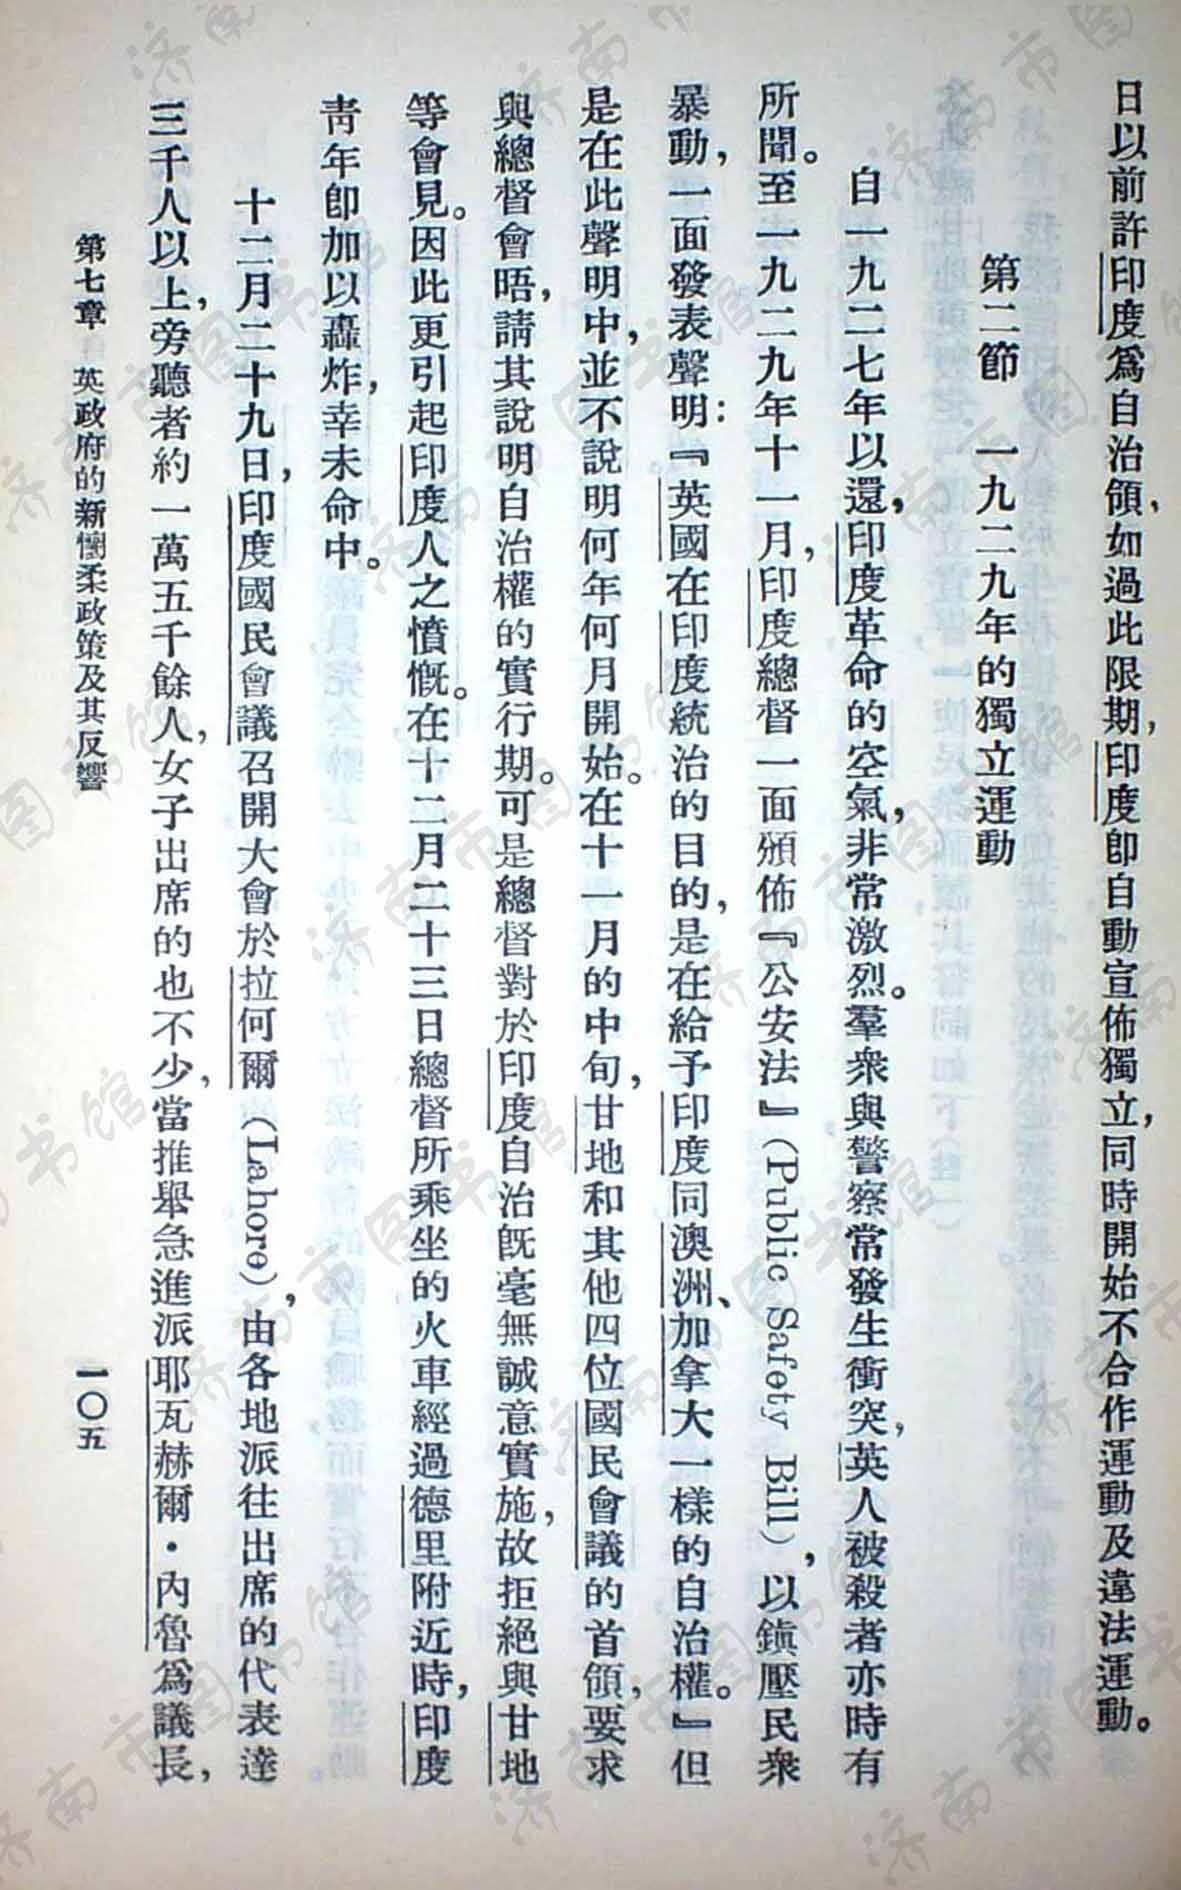 日以前許印度爲自治領，如過此限期，印度卽自動宣佈獨立，同時開始不合作運動及違法運動。
第二節　一九二九年的獨立運動
自一九二七年以還，印度革命的空氣，非常激烈。羣衆與警察常發生衝突，英人被殺者亦時有
所聞。至一九二九年十一月，印度總督一面頒佈『公安法』(Public Safety Bill)，以鎭壓民衆
暴動，一面發表聲明：『英國在印度統治的目的，是在給予印度同澳洲、加拿大一樣的自治權。』但
是在此聲明中，並不說明何年何月開始。在十一月的中旬，甘地和其他四位國民會議的首領，要求
與總督會晤，請其說明自治權的實行期。可是總督對於印度自治旣毫無誠意實施，故拒絕與甘地
等會見。因此更引起印度人之憤慨。在十二月二十三日總督所乘坐的火車經過德里附近時，印度
靑年卽加以轟炸，幸未命中。
十二月二十九日，印度國民會議召開大會於拉何爾(Lahore)，由各地派往出席的代表達
三千人以上，旁聽者約一萬五千餘人，女子出席的也不少，當推舉急進派耶瓦赫爾·內魯爲議長，
第七章　英政府的新懷柔政策及其反響
一〇五
济南市图书馆